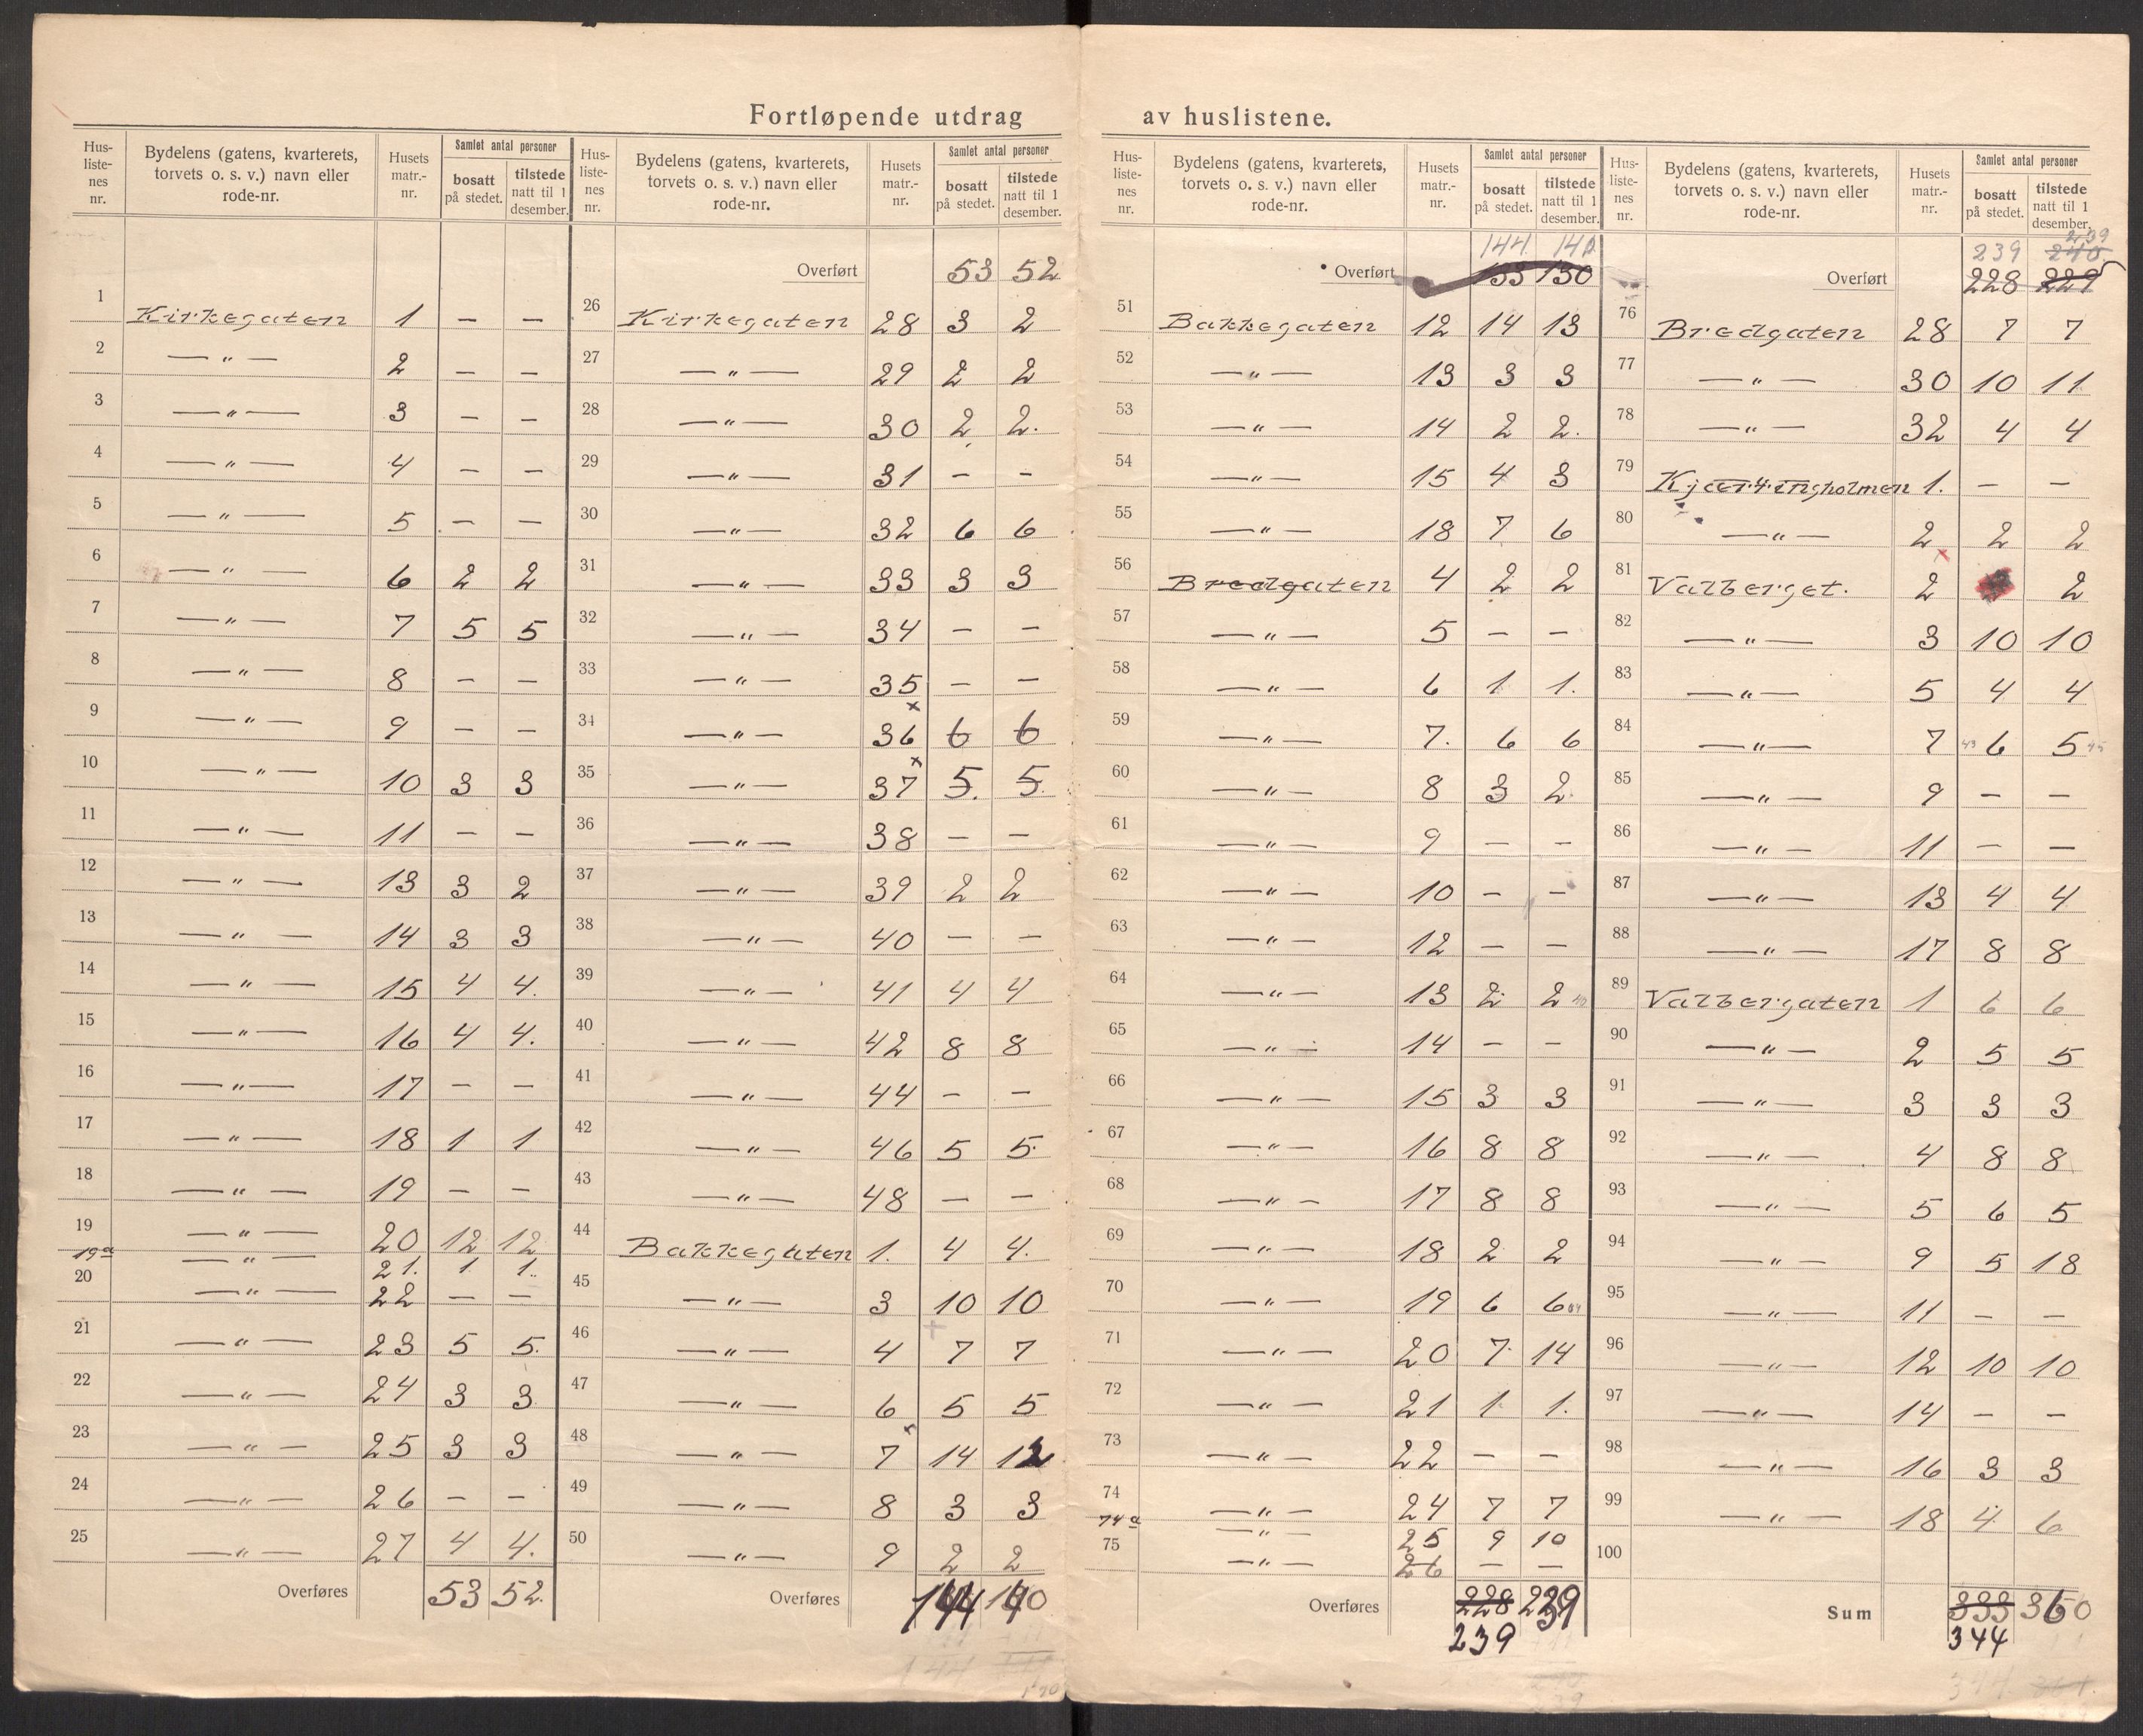 Fortløpende utdrag av huslistene.
Hus-liste-nes nr. | Bydelens (gatens, kvarterets, torvets o. s. v.) navn eller rode-nr. | Husets matr.-nr. | Samlet antal personer bosatt på stedet. | tilstede natt til 1 desember.
1 Kirkegaten 1 — —
2 —"— 2 — —
3 —"— 3 — —
4 —"— 4 — —
5 —"— 5 — —
6 —"— 6 2 2
7 —"— 7 5 5
8 —"— 8 — —
9 —"— 9 — —
10 —"— 10 3 3
11 —"— 11 — —
12 —"— 13 3 2
13 —"— 14 3 3
14 —"— 15 4 4.
15 —"— 16 4 4.
16 —"— 17 — —
17 —"— 18 1 1
18 —"— 19 — —
19 —"— 20 12 12
19a —"— 21. 1 1.
20 —"— 22 — —
21 —"— 23 5 5.
22 —"— 24 3 3
23 —"— 25 3 3
24 —"— 26 — —
25 —"— 27 4 4.
Overføres 53 52.
Hus-liste-nes nr. | Bydelens (gatens, kvarterets, torvets o. s. v.) navn eller rode-nr. | Husets matr.-nr. | Samlet antal personer bosatt på stedet. | tilstede natt til 1 desember.
Overført 53 52
26 Kirkegaten 28 3 2
27 —"— 29 2 2
28 —"— 30 2 2.
29 —"— 31 — —
30 —"— 32 6 6
31 —"— 33 3 3
32 —"— 34 — —
33 —"— 35 — —
34 —"— 36 x 6 6
35 —"— 37 x 5. 5.
36 —"— 38 — —
37 —"— 39 2 2
38 —"— 40 — —
39 —"— 41 4 4
40 —"— 42 8 8
41 —"— 44 — —
42 —"— 46 5 5.
43 —"— 48 — —
44 Bakkegaten 1. 4 4.
45 —"— 3 10 10
46 —"— 4 7 7
47 —"— 6 5 5
48 —"— 7 14 12
49 —"— 8 3 3
50 —"— 9 2 2
Overføres 144 140
144
Hus-liste-nes nr. | Bydelens (gatens, kvarterets, torvets o. s. v.) navn eller rode-nr. | Husets matr.-nr. | Samlet antal personer bosatt på stedet. | tilstede natt til 1 desember.
144 140
Overført 133 130
51 Bakkegaten 12 14 13
52 —"— 13 3 3
53 —"— 14 2 2.
54 —"— 15 4 3
55 —"— 18 7 6
56 Bredgaten 4 2 2
57 —"— 5 — —
58 —"— 6 1 1.
59 —"— 7. 6 6
60 —"— 8 3 2
61 —"— 9 — —
62 —"— 10 — —
63 —"— 12 — —
64 —"— 13 2 2
65 —"— 14 — —
66 —"— 15 3 3
67 —"— 16 8 8
68 —"— 17 8 8
69 —"— 18 2 2
70 —"— 19 6 6
71 —"— 20 7 14
72 —"— 21 1 1.
73 —"— 22 — —
74 —"— 24 7 7
74a —"— 25 9 10
75 —"— 26 — —
Overføres 228 239
239
Hus-liste-nes nr. | Bydelens (gatens, kvarterets, torvets o. s. v.) navn eller rode-nr. | Husets matr.-nr. | Samlet antal personer bosatt på stedet. | tilstede natt til 1 desember.
239
239 240
Overført 228 229
76 Bredgaten 28 7 7
77 —"— 30 10 11
78 —"— 32 4 4
79 Kjærringholmen 1. — —
80 —"— 2 2 2
81 Valberget. 2 2
82 —"— 3 10 10
83 —"— 5 4 4
84 —"— 7 43 6 5 45
85 —"— 9 — —
86 —"— 11 — —
87 —"— 13 4 4
88 —"— 17 8 8
89 Valbergaten 1 6 6
90 —"— 2 5 5
91 —"— 3 3 3
92 —"— 4 8 8
93 —"— 5 6 5
94 —"— 9 5 18
95 —"— 11 — —
96 —"— 12 10 10
97 —"— 14 — —
98 —"— 16 3 3
99 —"— 18 4 6
100
Sum 333 360
344
344 361.